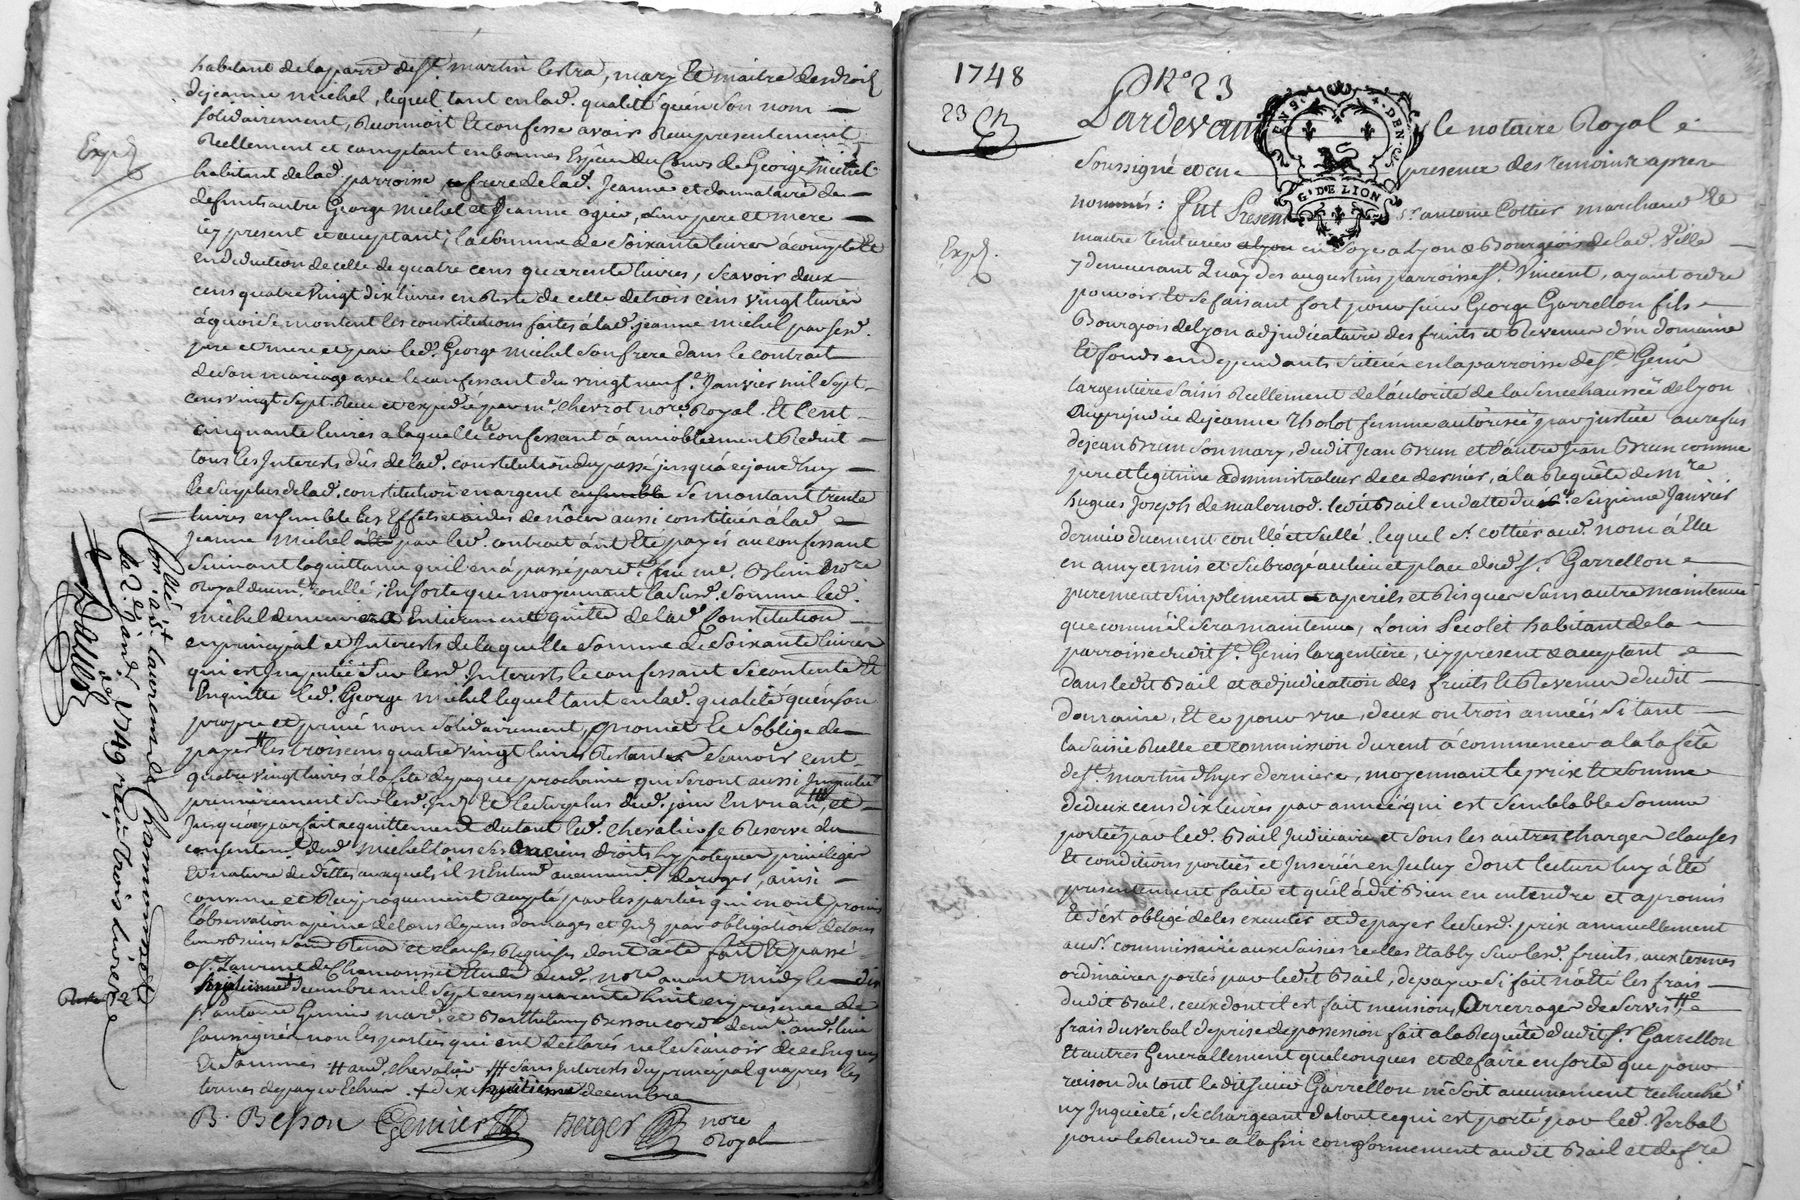 habitant de la parre de St. martin lestra, mary Et maitre des droits
de jeanne michel, lequel tant en lad. qualité qu'en son nom
solidairement, Reconnoit Et confesse avoir Reçu presentement
Reellement et comptant en bonnes Espèces du Cours de George michel
Expd
habitant de lad. parroisse frere de lad. Jeanne et donnataire de
defunts autre George Michel et Jeanne ogier, leur pere et mere
icy present et acceptant, la somme de soixante livres à compte Et
En deduction de celle de quatre cens quarente livres, scavoir deux
cens quatre vingt dix livres en Reste de celle de trois cens vingt livres
à quoi se montent les constitutions faites à lad. jeanne michel par sesd.
pere et mere et par led. George Michel son frere dans le contrat
de son mariage avec le confessant du vingt neuf Janvier mil sept
cens vingt sept Reçu et expedié par me. Chevrot nore Royal. Et Cent
cinquante livres a laquelle le confessant à amiablement Reduit
tous les Interests dûs de lad. constitution du passé jusqu'à ce jourd'huy
le surplus de lad. constitution en argent ensemble se montant trente
livres ensemble les Effets et aides de nôces aussi constitués à lad.
Jeanne Michel par led. contrat ont Eté payés au confessant
suivant la quittance qu'il en à passé pard.t feu me. nore
Royal duem.t conllé; Ensorte que moyennant la susd. somme led.
michel demeurera Entierement quitte de lad. Constitution
en principal et Interests de laquelle somme de soixante livres
qui est Imputée sur lesd. Interests le confessant se contente Et
En quitte led. George michel lequel tant en lad. qualité qu'en son
propre et privé nom solidairement, promet Et s'oblige de
payer # les trois cens quatre vingt livres Restantes scavoir cent
quatre vingt livres à la fete de paque prochaine qui seront aussi Imputés
premierement sur lesd. Et le surplus dud. jour En un an, et
jusqu'à parfait acquittement du tout led. chevalier se Reserve du
consentem.t dud. Michel tous ses anciens droits hypoteques privileges
Et nature de dettes auxquels il n'Entend aucunem.t deroger, ainsi
convenu et Reciproquement accepté par les parties qui en ont promis
l'observation a peine de tous depens domages et par obligation de tous
leurs Biens Et clauses Requises dont acte fait Et passé
a St. Laurent de Chamousset Etude dud. nore avant midy le dix
huitieme decembre mil sept cens quarente huit en presence de
sr. antoine Genier mard. et Barthelemy Besson cord. dem.t aud. lieu
soussignés non les parties qui ont declarés ne le scavoir de ce Enquis
Et sommés # aud. chevalier ## sans Interests du principal qu'apres les
termes de payer Echus . + dix huitieme decembre
B. Besson Genier Berger nore
Royal
Conllé à st. laurent de chamousset
le 2e janv. 1749 reçu trois livres
1748
23
No. 23
G. DE LION
Pardevant le notaire Royal
soussigné et en presence des temoins apres
nommés: Fut Present Sr. antoine Cottier marchand Et
maitre teinturier en soye a Lyon & Bourgeois de lad. Ville
y demeurant Quay des augustins parroisse St. Vincent, ayant ordre
Expd.
pouvoir Et se faisant fort pour sieur George Garrellon fils
Bourgeois de Lyon adjudicataire des fruits et Revenus d'un domaine
Et fonds en dependants situés en la parroisse de St. Genis
largentiere saisis Reellement de l'autorité de la senechaussée de Lyon
au prejudice de jeanne Tholot femme autorisée par justice au refus
de jean Brun son mary, dudit Jean Brun et d'autre Jean Brun comme
pere et legitime administrateur de ce dernier, à la Requête de Mre
hugues Joseph de malernod. ledit Bail en datte du seizieme Janvier
dernier duement conllé et scellé. lequel Sr. Cottier aud. nom à Eté
en amy et mis et subrogé au lieu et place dud. Sr. Garrellon
purement simplement a perils et Risques sans autre maintenue
que comme il sera maintenu, Louis Pecolet habitant de la
parroisse dudit St. Genis largentiere, icy present & acceptant
dans ledit Bail et adjudication des fruits et Revenus dudit
domaine, Et ce pour une, deux ou trois années si tant
la saisie Reelle et commission durent à commencer a la fête
de St. martin d'hyver derniere, moyennant le prix Et somme
de deux cens dix livres par année qui est semblable somme
portée par led. Bail Judiciaire et sous les autres charges clauses
Et conditions portées et Inserées en Iceluy dont lecture luy à Eté
presentement faite et qu'il à dit Bien en entendre et a promis
Et s'est obligé de les executer et de payer le susd. prix annuellement
au Sr. commissaire aux saisies réelles Etably sur lesd. fruits, aux termes
ordinaires portés par ledit Bail, de payer si fait n'a été les frais
dudit Bail, ceux dont il est fait mention, Arrerages de Servis
frais du verbal de prise de possession fait a la Requête dudit Sr. Garrellon
Et autres Generallement quelconques et de faire ensorte que pour
raison du tout ledit sieur Garrellon ne soit aucunement recherché
ny Inquieté, se chargeant de tout ce qui est porté par led. Verbal
pour le Rendre a la fin conformement audit Bail et de